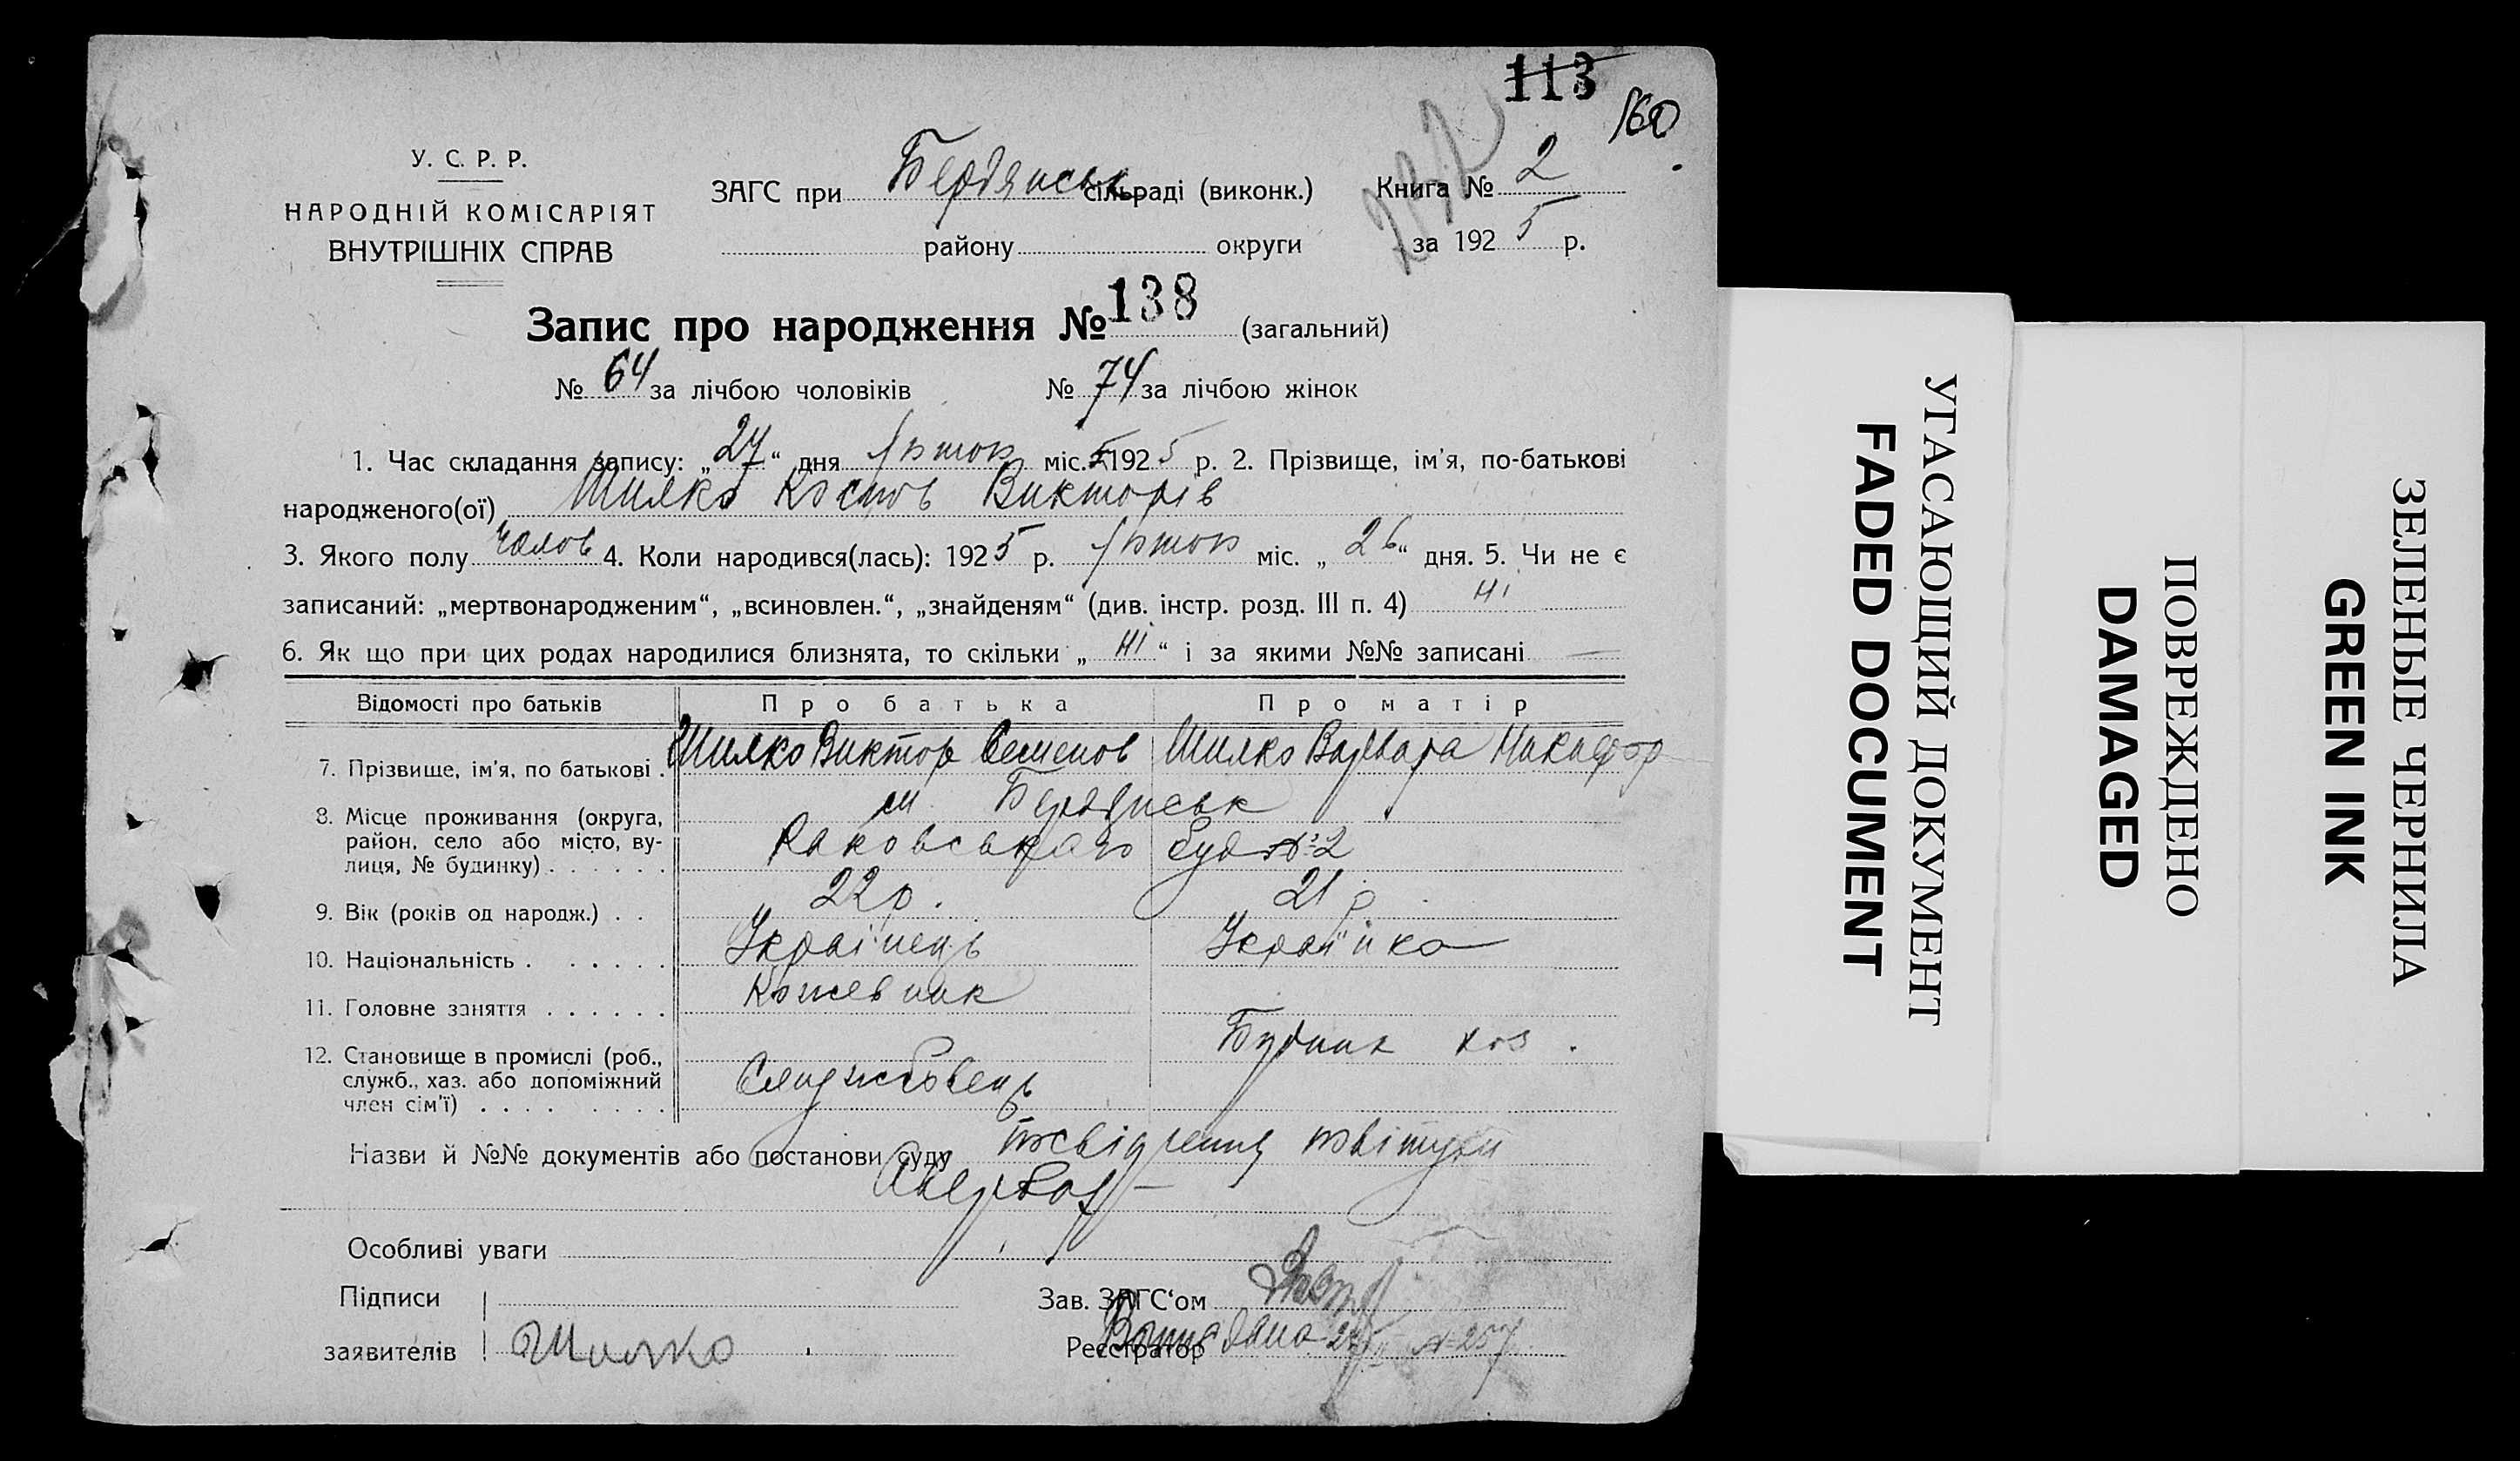 113
160
У. С. Р. Р.
НАРОДНІЙ КОМІСАРІЯТ
ВНУТРІШНІХ СПРАВ
ЗАГС при Бердянськ сільраді (виконк.)
району округи
Книга № 2
за 1925 р.
Запис про народження № 138 (загальний)
№ 64 за лічбою чоловіків № 74 за лічбою жінок
1. Час складання запису: „27“ дня міс. 1925 р. 2. Прізвище, ім’я, по-батькові
народженого(ої) Шилко Викторів
3. Якого полу чолов 4. Коли народився(лась): 1925 р. міс. „26“ дня. 5. Чи не є
записаний: „мертвонародженим“, „всиновлен.“, „знайденям“ (див. інстр. розд. III п. 4) Ні
6. Як що при цих родах народилися близнята, то скільки „Ні“ і за якими №№ записані —
Відомості про батьків Про батька Про матір
7. Прізвище, ім’я, по батькові . Шилко Виктор Семенов Шилко Варвара Никифор
8. Місце проживання (округа, район, село або місто, вулиця, № будинку) . . . . . . м Бердянськ
Раковського буд № 2
9. Вік (років од народж.) . . 22 р. 21 р
10. Національність . . . . . . Українець Українка
11. Головне заняття . . . . . . Кожевник
12. Становище в промислі (роб., служб., хаз. або допоміжний член сім’ї) . . . . . . . . Службовець Будинк хоз.
Назви й №№ документів або постанови суду посвідчення
Особливі уваги
Підписи
заявителів Шилко
Зав. ЗАГС‘ом
Реєстратор
УГАСАЮЩИЙ ДОКУМЕНТ
FADED DOCUMENT
ПОВРЕЖДЕНО
DAMAGED
ЗЕЛЕНЫЕ ЧЕРНИЛА
GREEN INK